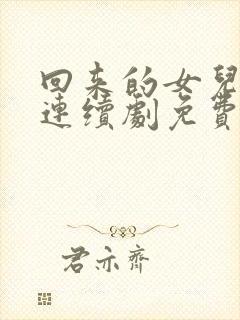 回来的女兒
連續劇免費
君亦齊